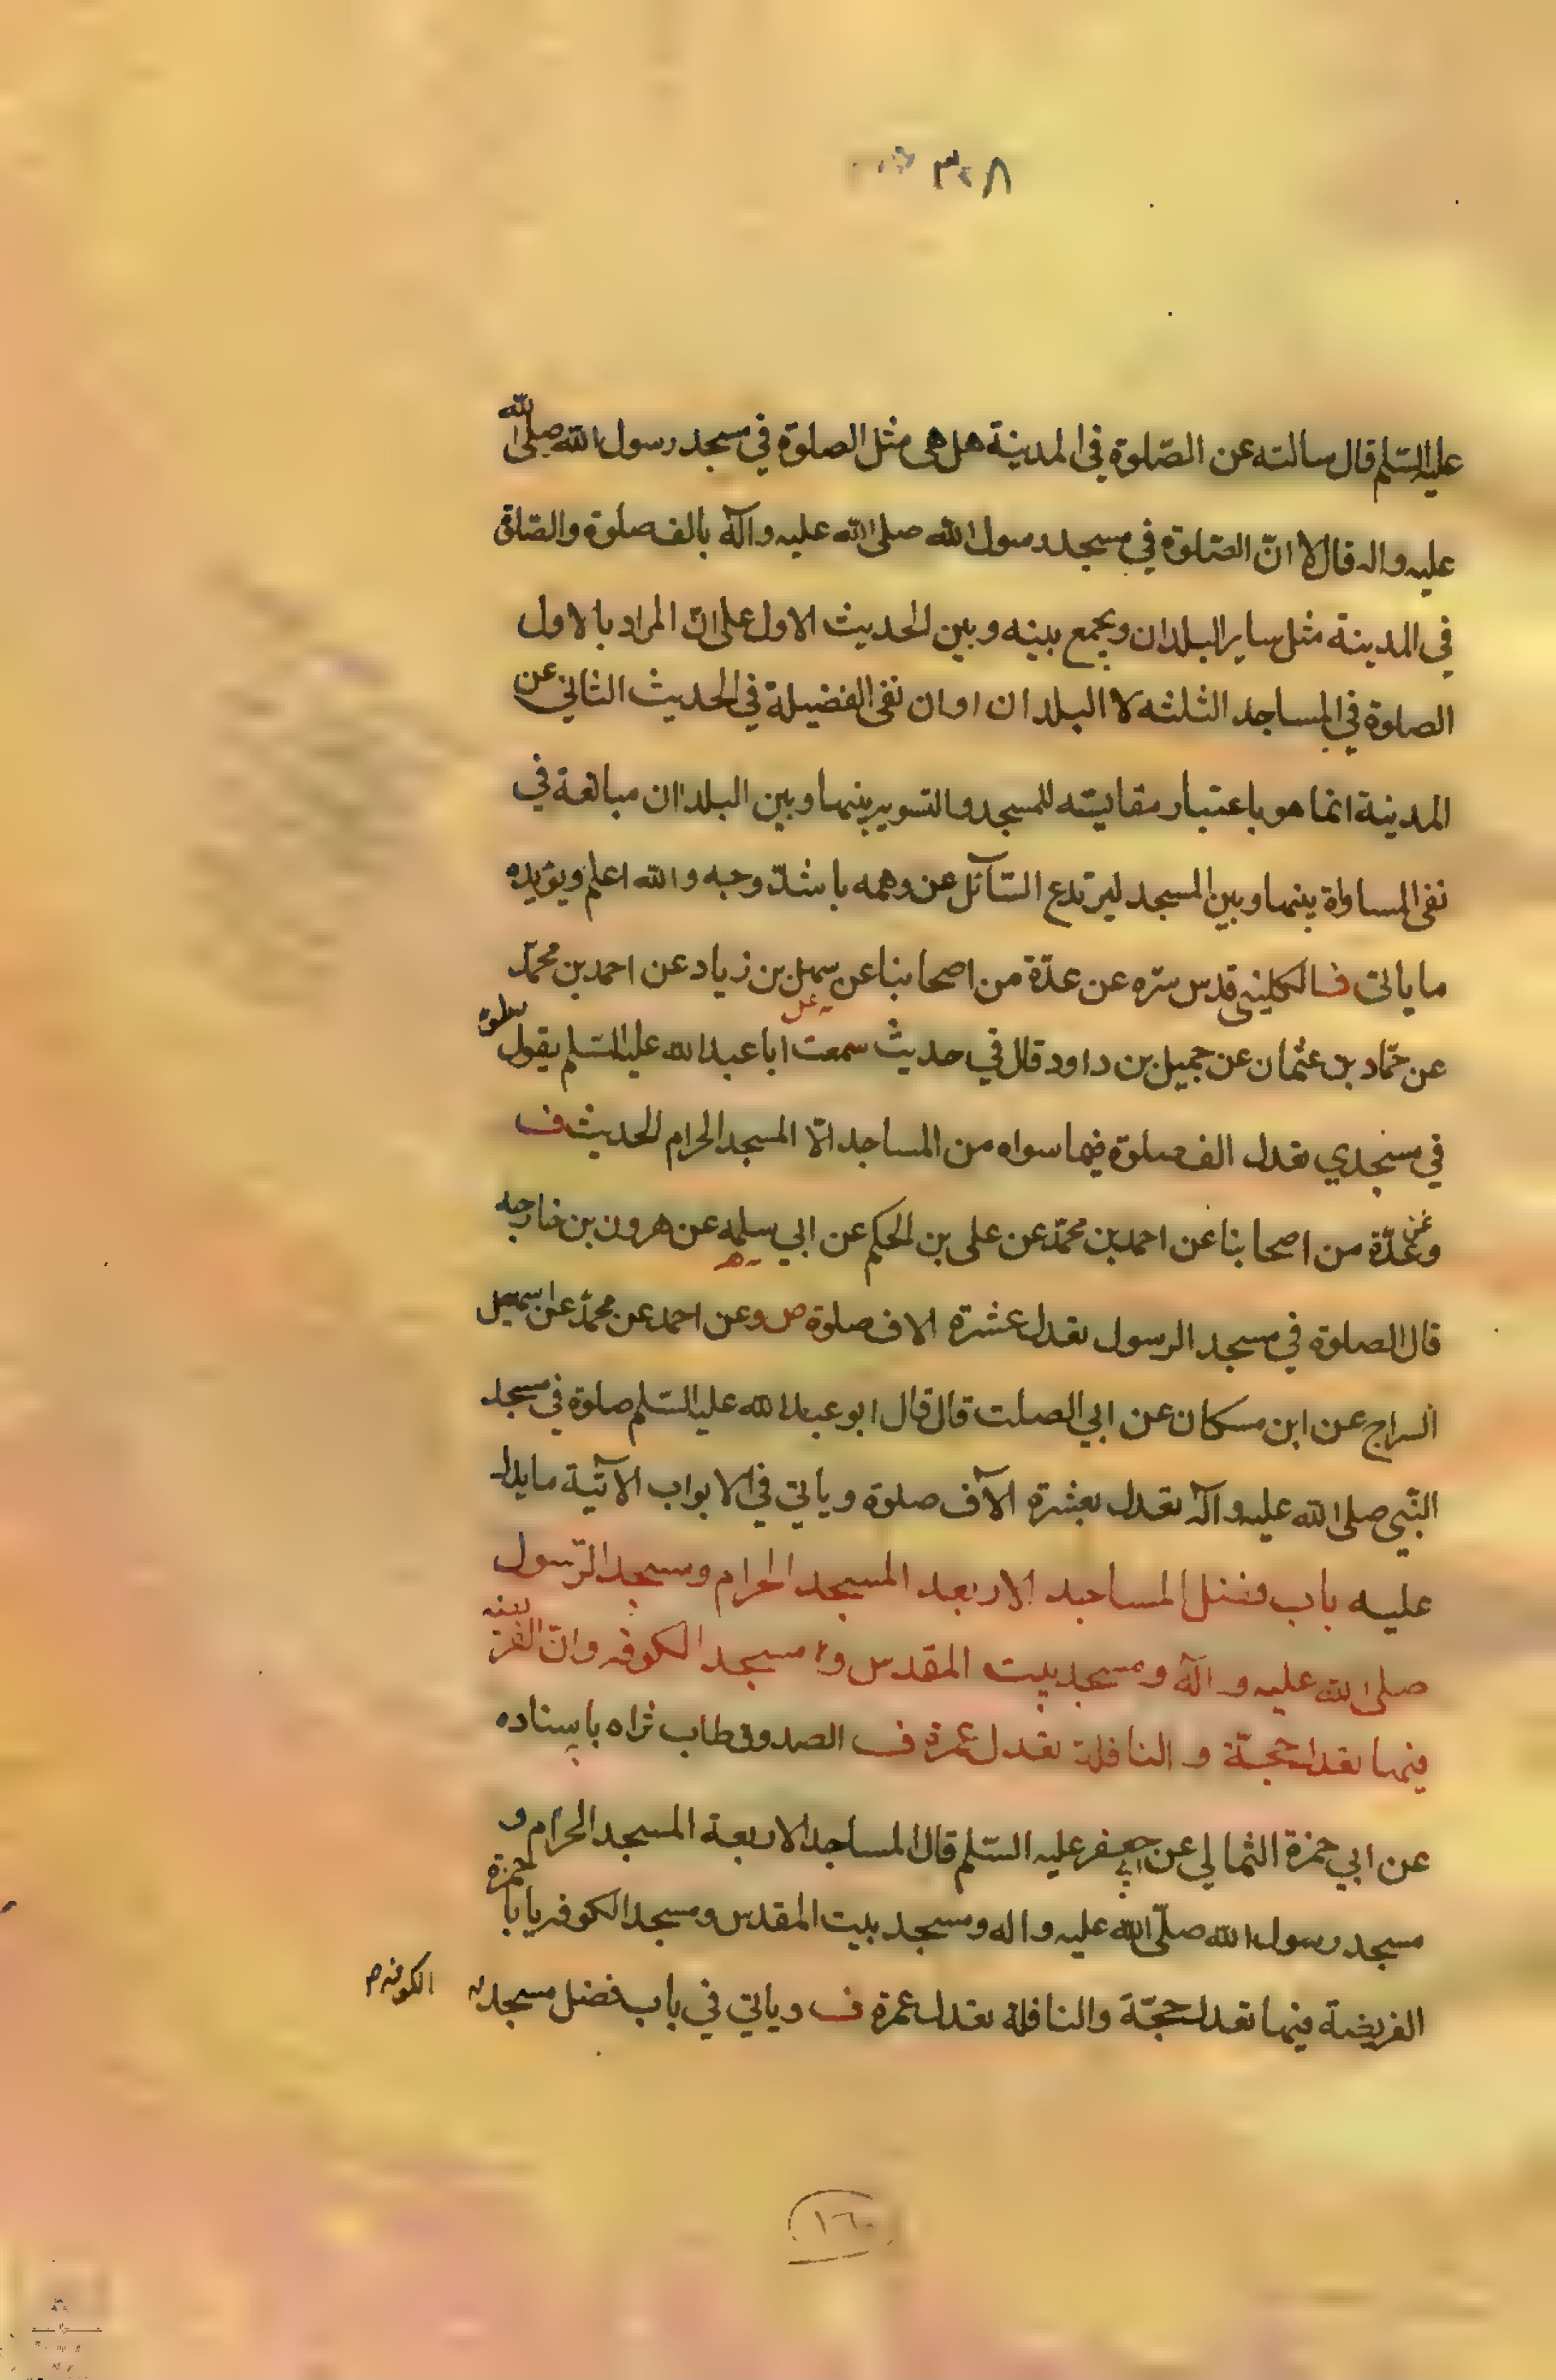 ٣٢٨
عليه السّلم قال سالته عن الصّلوة في المدينة هل هى مثل الصلوة في مسجد رسول الله صلى الله
عليه واله قال لا انّ الصّلوة في مسجد رسول الله صلى الله عليه وآله بالف صلوة والصّلوة
في المدينة مثل ساير البلدان ويجمع بينه وبين الحديث الاول على انّ المراد بالاول
الصلوة في المساجد الثلثه لا البلدان او ان نفى الفضيلة في الحديث الثاني عن
المدينة انما هو باعتبار مقايسته للمسجد والتسويه بينها وبين البلدان مبالغة في
نفى المساواة بينها وبين المسجد ليرتدع السّآئل عن وهمه باشدّ وجبه والله اعلم ويؤيده
ما ياتى ف الكلينى قدس سّره عن عدّة من اصحابنا عن سهل بن زياد عن احمد بن محمّد
عن حمّاد بن عثمان عن جميل بن داود قال في حديث سمعت ابا عبد الله عليه السّلم يقول صلوة
في مسجدي تعدل الف صلوة فيما سواه من المساجد الّا المسجد الحرام الحديث ف
وعن عدّة من اصحابنا عن احمد بن محمّد عن على بن الحكم عن ابي سلمه عن هرون بن خارجه
قال الصلوة في مسجد الرسول تعدل عشرة الاف صلوة ص وعن احمد عن محمّد عن اسمعيل
السراج عن ابن مسكان عن ابي الصلت قال قال ابو عبد الله عليه السّلم صلوة في مسجد
النّبي صلى الله عليه وآله تعدل بعشرة الآف صلوة وياتي في الابواب الآتية ما يدل
عليه باب فضل المساجد الاربعه المسجد الحرام ومسجد الرّسول
صلى الله عليه وآله ومسجد بيت المقدس ومسجد الكوفه وانّ الفريضه
فيها تعدل حجّة والنافلة تعدل عمرة ف الصدوق طاب ثراه باسناده
عن ابي حمزة الثمالي عن ابي جعفر عليه السّلم قال المساجد الاربعة المسجد الحرام و
مسجد رسول الله صلّى الله عليه واله ومسجد بيت المقدس ومسجد الكوفه يا با حمزة
الفريضة فيها تعدل حجّة والنافلة تعدل عمرة ف وياتي في باب فضل مسجد الكوفه
١٦٠